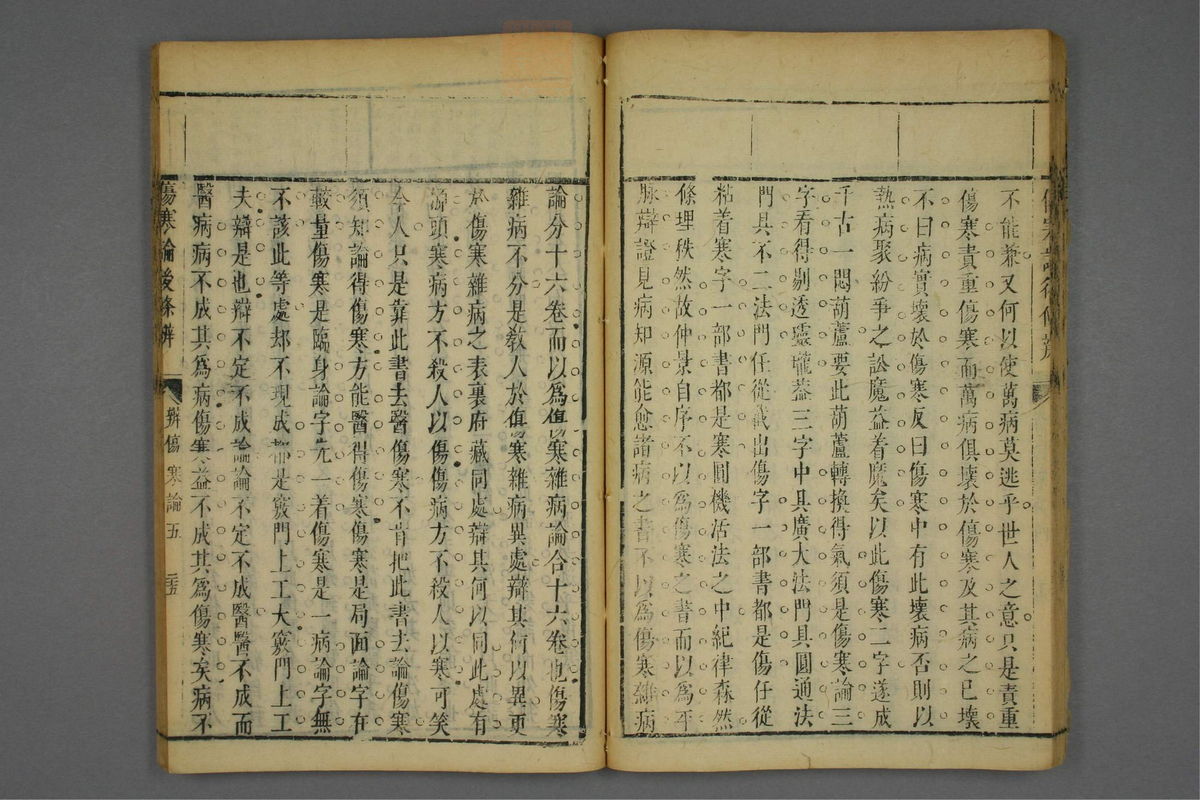 不能兼又何以使萬病莫逃乎世人之意只是責重
傷寒責重傷寒而萬病俱壞於傷寒及其病之已壞
不曰病實壞於傷寒反曰傷寒中有此壞病否則以
熱病聚紛爭之訟魔益着魔矣以此傷寒二字遂成
千古一悶葫蘆要此葫蘆轉換得氣須是傷寒論三
字看得剔透靈瓏葢三字中具廣大法門具圓通法
門具不二法門任從截出傷字一部書都是傷任從
粘着寒字一部書都是寒圓機活法之中紀律森然
條理秩然故仲景自序不以爲傷寒之書而以爲平
脉辯證見病知源能愈諸病之書不以爲傷寒雜病
論分十六卷而以爲傷寒雜病論合十六卷也傷寒
雜病不分是教人於傷寒雜病異處辯其何以異更
於傷寒雜病之表裏府藏同處辯其何以同此處有
源頭寒病方不殺人以傷傷病方不殺人以寒可笑
今人只是靠此書去醫傷寒不肯把此書去論傷寒
須知論得傷寒方能醫得傷寒傷寒是局面論字在
較量傷寒是臨身論字先一着傷寒是一病論字無
不該此等處却不現成都是竅門上工大竅門上工
夫辯是也辯不定不成論論不定不成醫醫不成而
醫病病不成其爲病傷寒益不成其爲傷寒矣病不
傷寒論後條辨
辨傷寒論五
二五